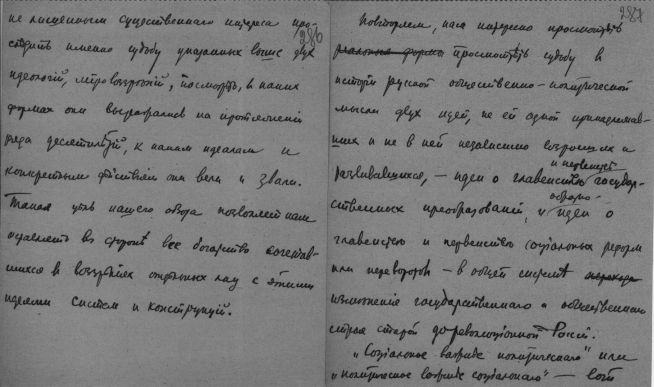 286
не лишенным существенного интереса про-
следить именно судьбу указанных выше двух
идеологий, мировоззрений, посмотреть, в каких
формах они выражались на протяжении
ряда десятилетий, к каким идеалам и
конкретным действиям они вели и звали.
Такая цель нашего обзора позволяет нам
оставлять в стороне все богатство сочетав-
шихся в воззрениях отдельных лиц с этими
идеями систем и конструкций.
287
Повторяем, нам интересно просмотреть
просмотреть судьбу в
истории русской общественно-политической
мысли двух идей, не ей одной принадлежав-
ших и не в ней независимо возросших и
и первенстве
развивавшихся, – идеи о главенстве государ-
ственных преобразований, и идеи о
главенстве и первенстве социальных реформ
или переворотов – в общей системе
изменения государственного и общественного
строя старой дореволюционной России.
„Социальное вопреки политическаго" или
„политическое вопреки социальнаго" – вот